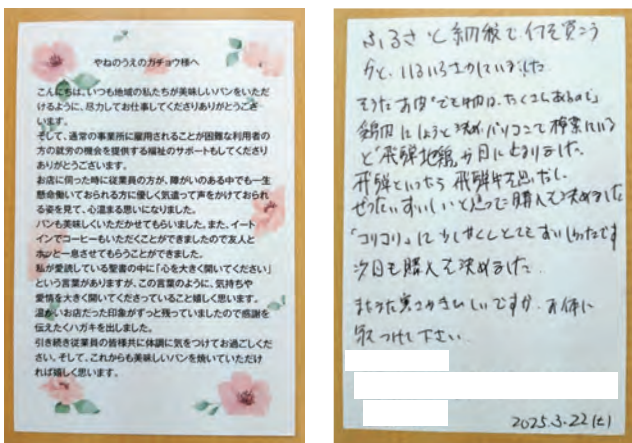 やねのうえのガチョウ様へ
こんにちは、いつも地域の私たちが美味しいパンをいただ
けるように、尽力してお仕事してくださりありがとうござ
います。
そして、通常の事業所に雇用されることが困難な利用者の
方の就労の機会を提供する福祉のサポートもしてくださり
ありがとうございます。
お店に伺った時に従業員の方が、障がいのある中でも一生
懸命働いておられる方に優しく気遣って声をかけておられ
る姿を見て、心温まる思いになりました。
パンも美味しくいただかせてもらいました。また、イート
インでコーヒーもいただくことができましたので友人と
ホッと一息させてもらうことができました。
私が愛読している聖書の中に「心を大きく開いてください」
という言葉がありますが、この言葉のように、気持ちや
愛情を大きく開いてくださっていること嬉しく思います。
温かいお店だった印象がずっと残っていましたので感謝を
伝えたくハガキを出しました。
引き続き従業員の皆様共に体調に気をつけてお過ごしくだ
さい。そして、これからも美味しいパンを焼いていただけ
れば嬉しく思います。
ふるさと納税で、何を買こう
かと、いろいろさがしていました
鍋肉にしようと決め、パソコンで検索している
と「飛騨地鶏」が目に止まりました。
飛騨といったら飛騨牛を思いだし
ぜったいおいしいと思って購入を決めました
「コリコリ」
次回も購入を決めました
お体に
気つけて下さい
2025.3.22(土)